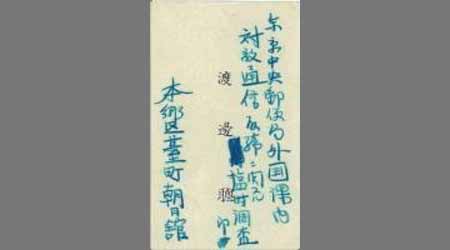 東京中央郵便局外国課内
対敵通信取締ニ関スル
臨時調査
渡邊
本郷区臺町朝日舘